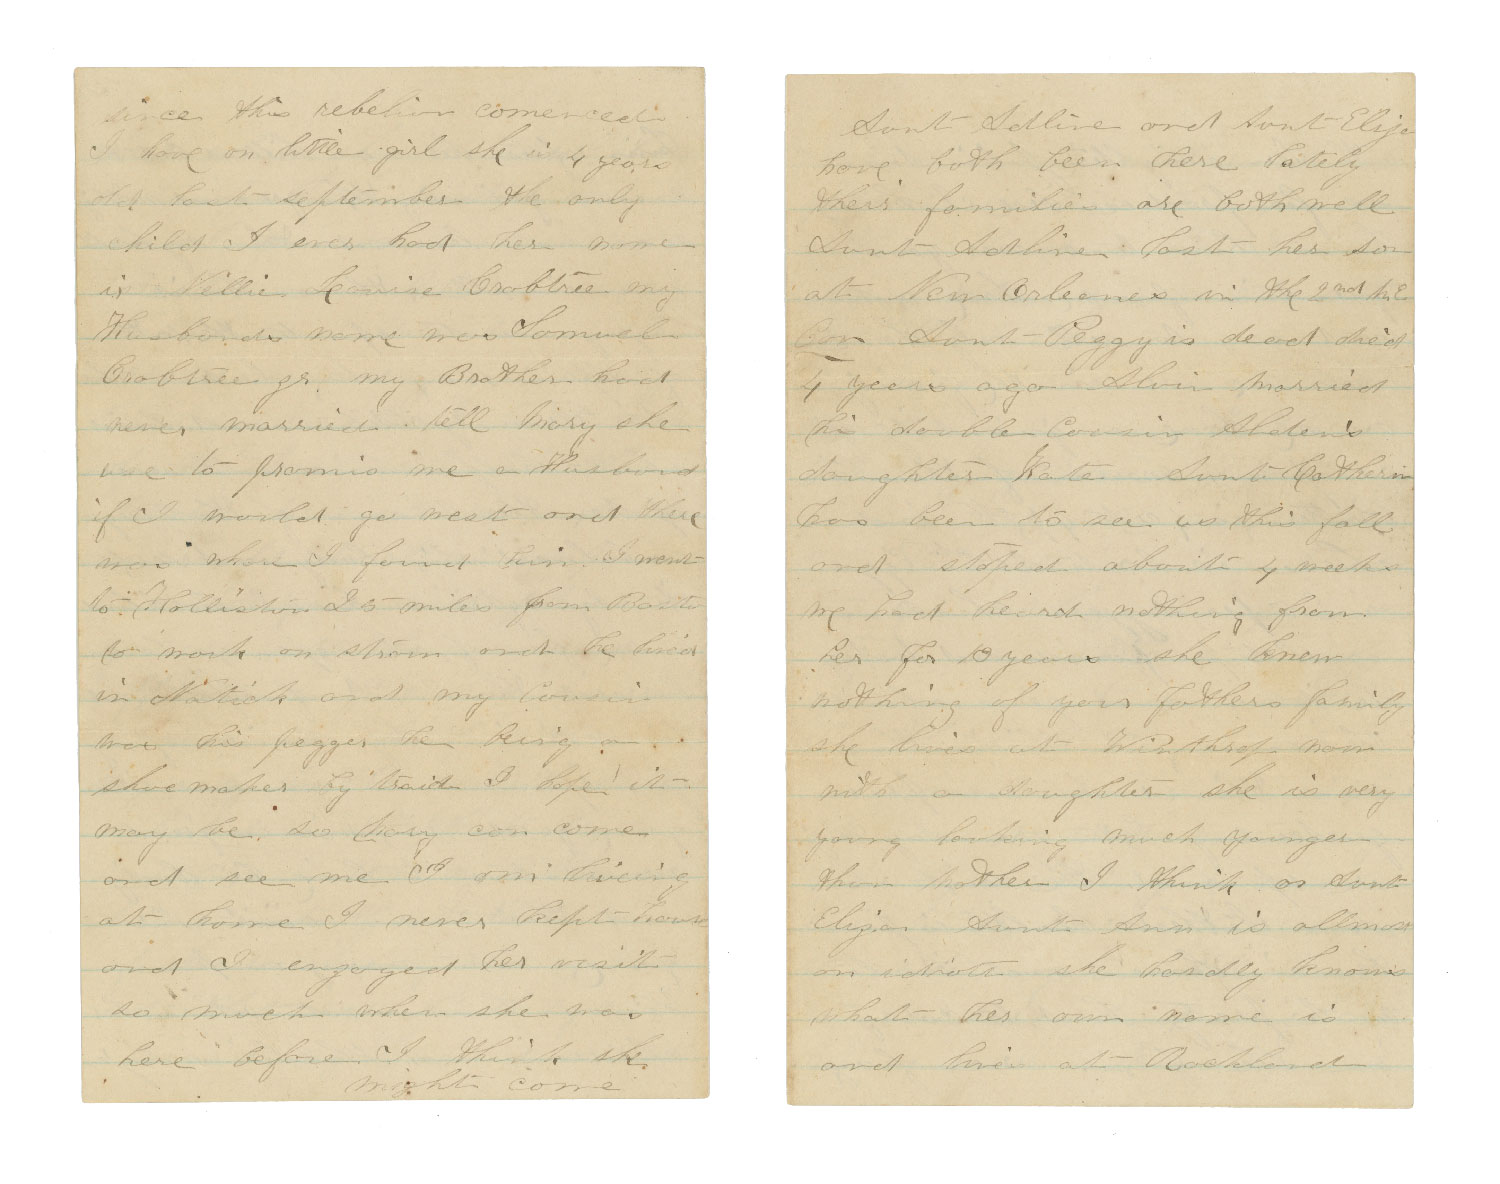 since this rebelion comenced
I have on little girl she is 4 years
old last september the only
child I ever had her name
is Nellie Louise Crabtree my
Husbands name was Samuel
Crabtree jr. my Brother had
never married. tell Mary she
use to promis me a Husband
if I would go west and there
was where I found him. I went
to Holliston 25 miles from Bosto
to work on straw and he lived
in Natick and my Cousin
was his pegger he being a
shoe maker by traid I hope it
may be so Mary can come
and see me I am liveing
at home I never kept house
and I engoyed her visit
so much when she was
here before I think she
might come
Aunt Adline and Aunt Eliza
have both been here lately
their families are both well
Aunt Adline lost her son
at New Orleanes in the 2nd M.E
Cav Aunt Peggy is dead died
4 years ago Alvin married
his double Cousin Alden's
daughter Kate Aunt Catherin
has been to see us this fall
and stoped about 4 weeks
we had heard nothing from
her for 10 years she knew
nothing of your Fathers family
she lives at Winthrop now
with a daughter she is very
young looking much younger
than Mother I think or Aunt
Eliza Aunt Ann is allmost
an idiott she hardly knows
what her own name is
and lives at Rockland